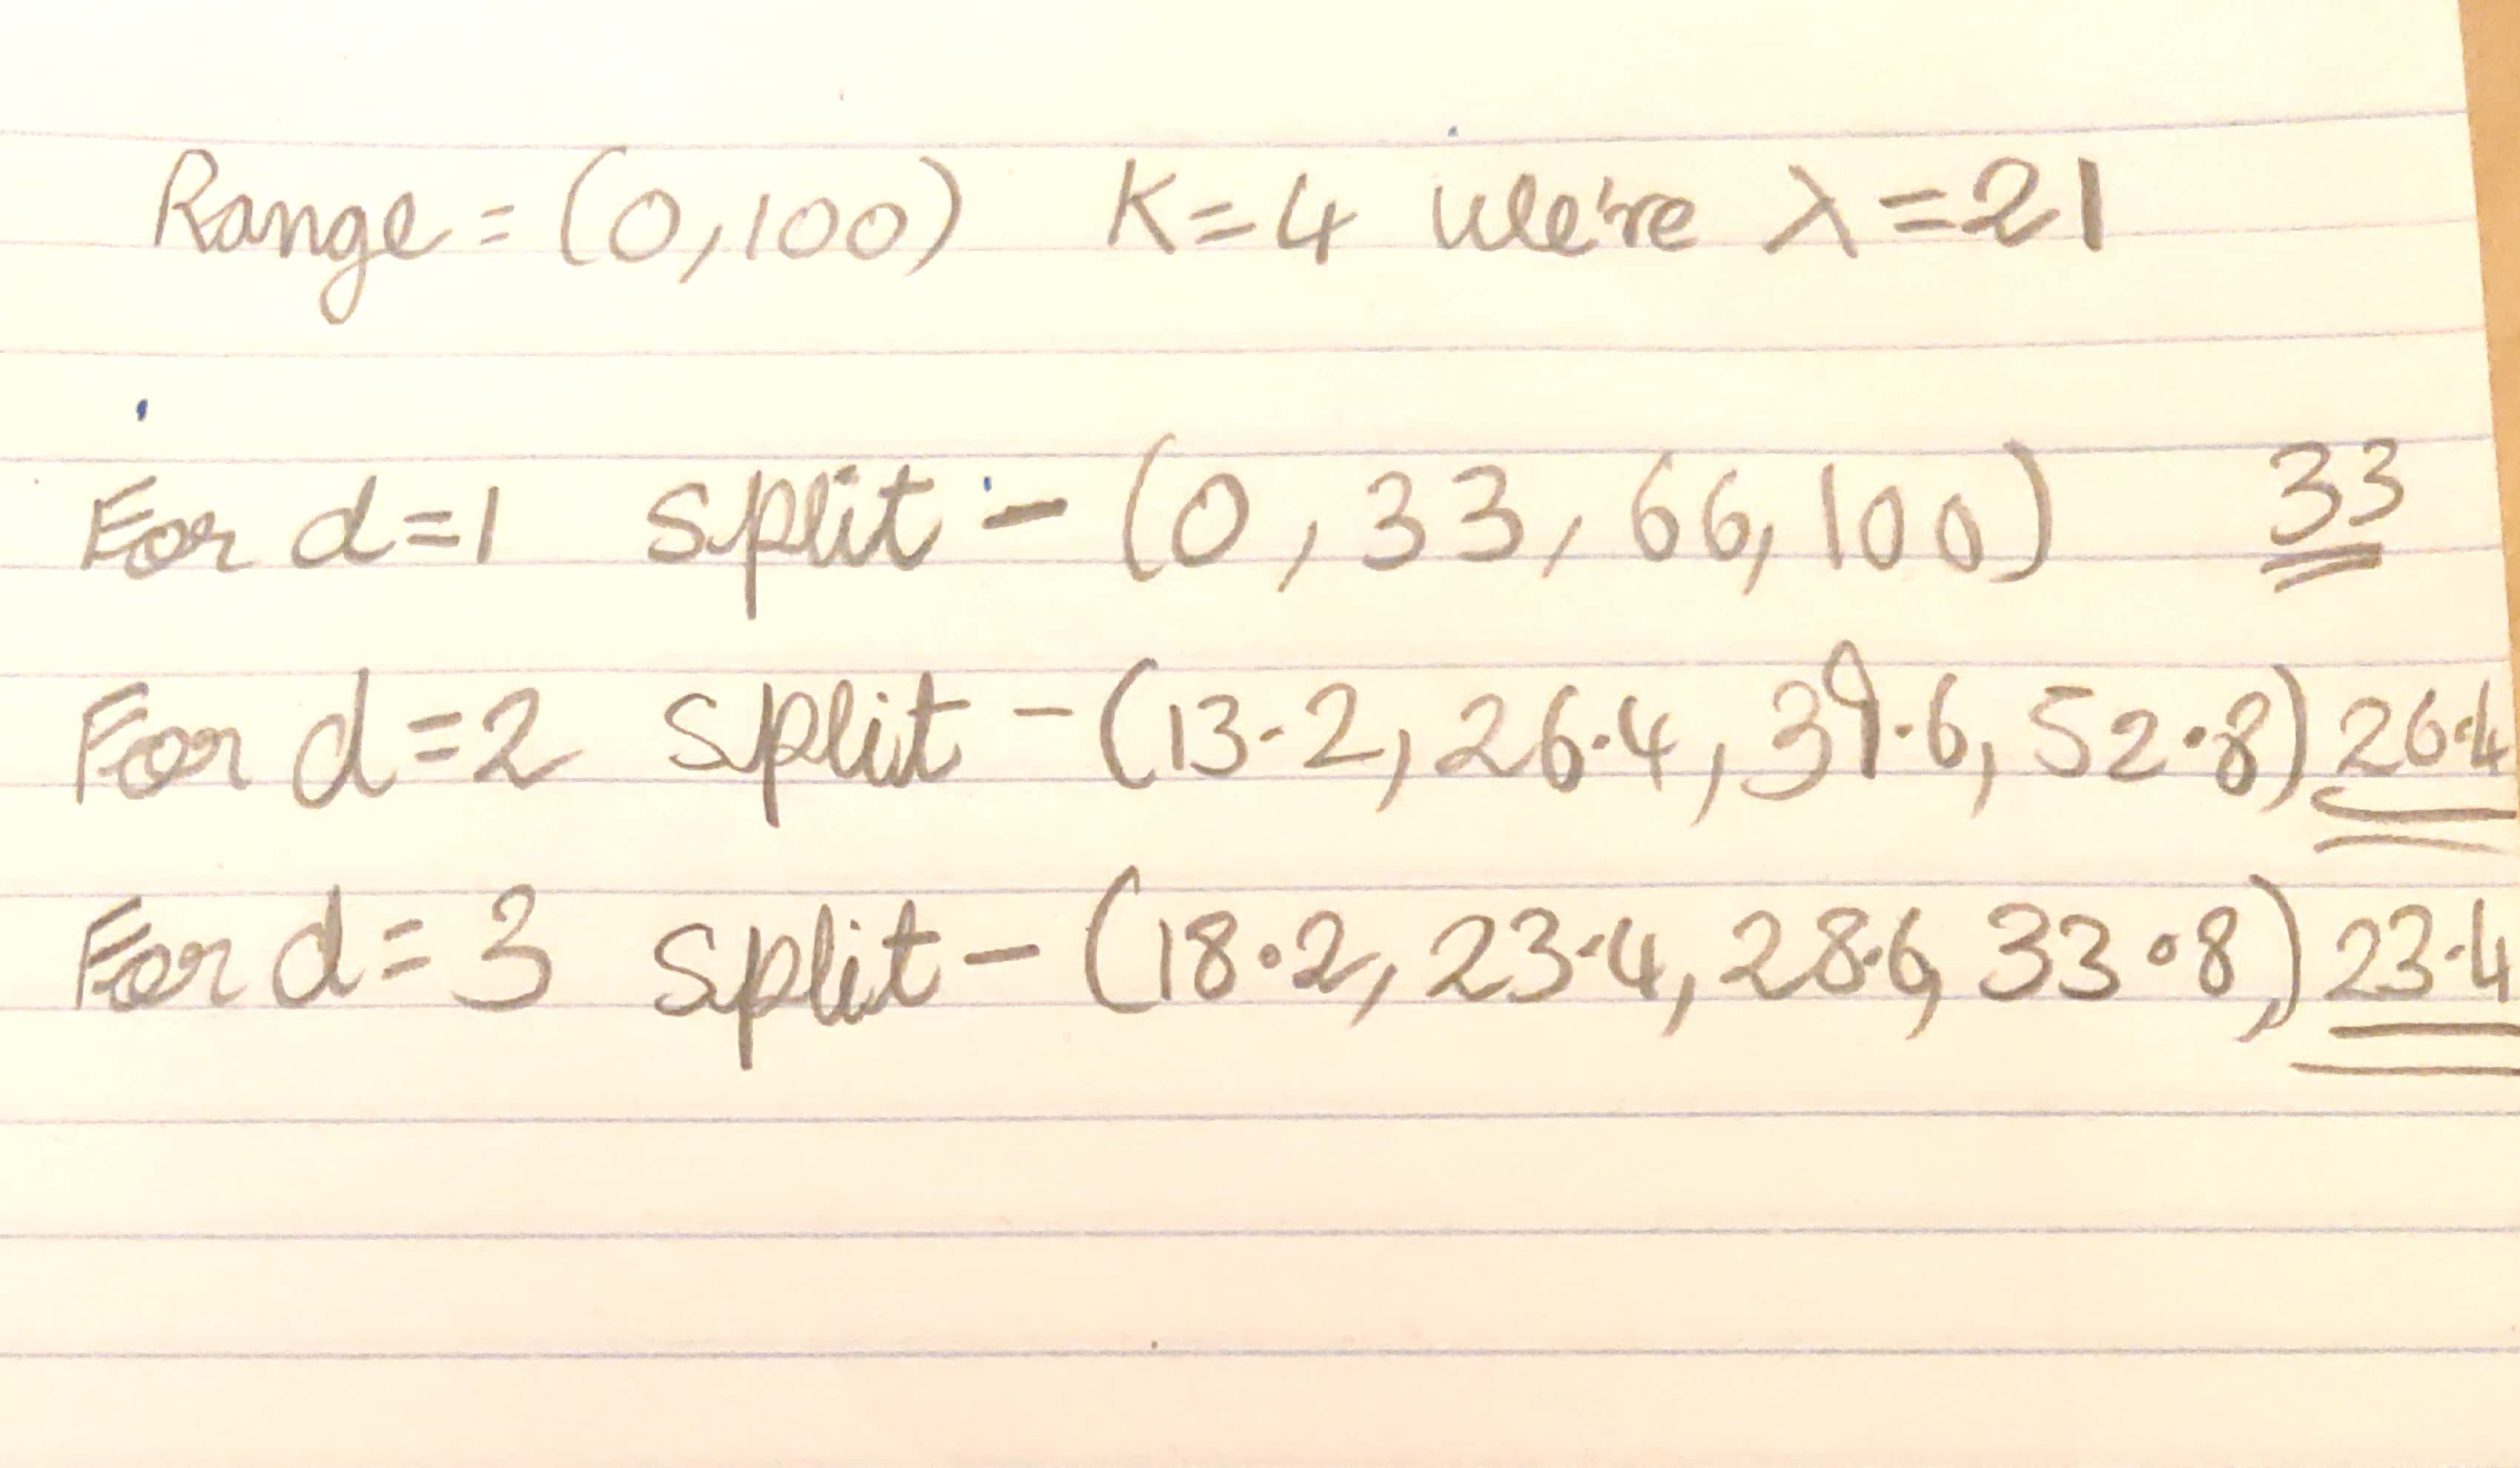 Range = (0,100) K=4 We're λ=21
For d=1 split :- (0, 33, 66, 100) 33
For d=2 split - (13.2, 26.4, 39.6, 52.8) 26.4
For d=3 split - (18.2, 23.4, 28.6, 33.8,) 23.4